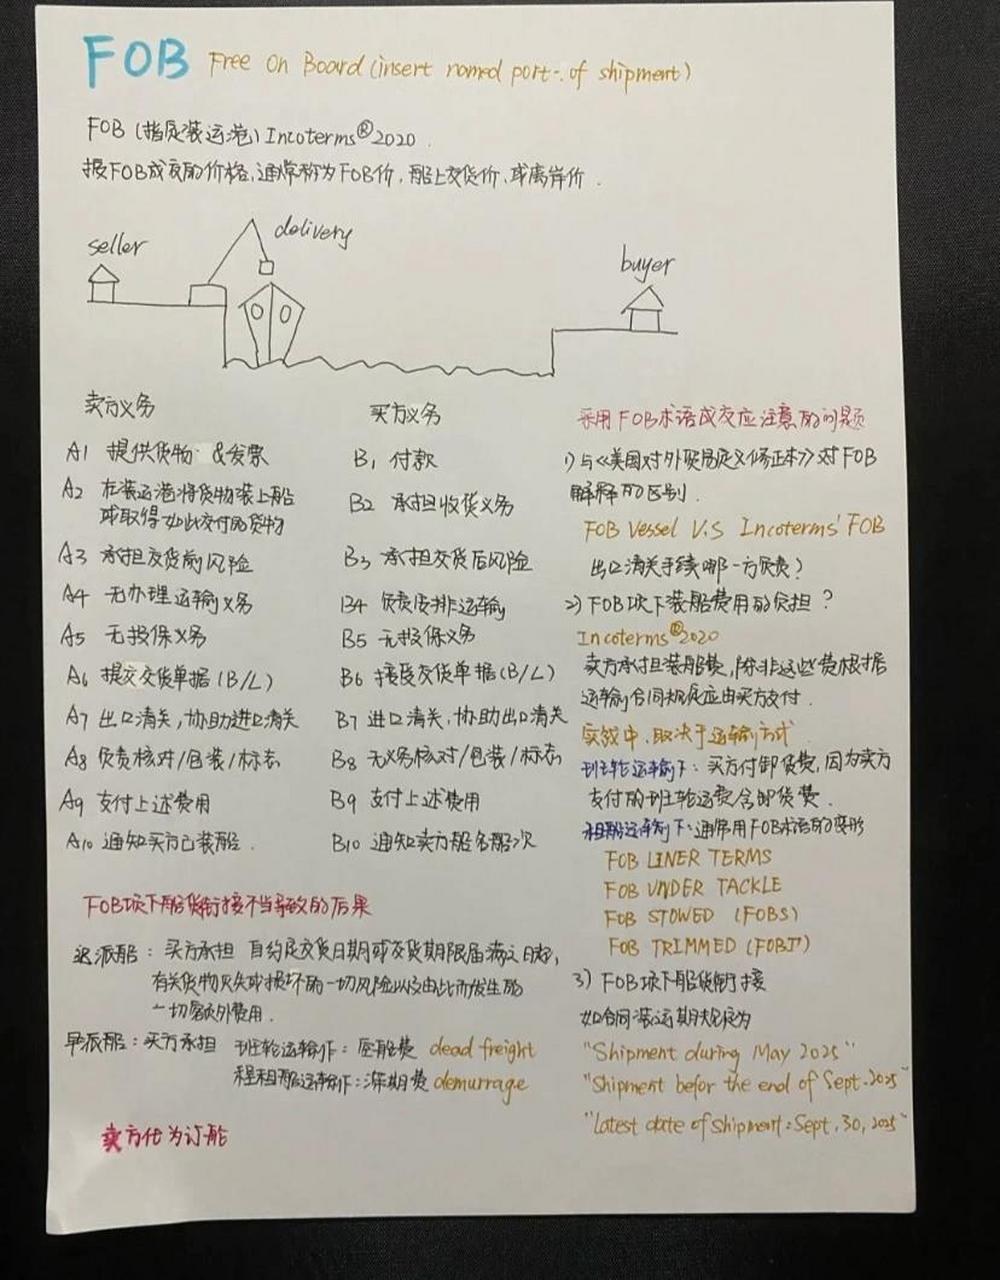 FOB Free On Board (insert named port of shipment)
FOB (指定装运港) Incoterms®2020
按FOB成交的价格,通常称为FOB价,船上交货价,或离岸价.
seller
delivery
buyer
卖方义务
A1 提供货物 & 发票
A2 在装运港将货物装上船
或取得如此交付的货物
A3 承担交货前风险
A4 无办理运输义务
A5 无投保义务
A6 提交交货单据(B/L)
A7 出口清关,协助进口清关
A8 负责核对/包装/标志
A9 支付上述费用
A10 通知买方已装船.
买方义务
B1 付款
B2 承担收货义务
B3 承担交货后风险
B4 负责安排运输
B5 无投保义务
B6 接受交货单据(B/L)
B7 进口清关,协助出口清关
B8 无义务核对/包装/标志
B9 支付上述费用
B10 通知卖方船名船次
FOB项下船货衔接不当导致的后果
迟派船: 买方承担 自约定交货日期或交货期限届满之日起,
有关货物灭失或损坏的一切风险以及由此而发生的
一切额外费用.
早派船: 买方承担 班轮运输下: 空舱费 dead freight
程租船运输下: 滞期费 demurrage
卖方代为订船
采用FOB术语成交应注意的问题
1) 与《美国对外贸易定义修正本》对FOB
解释的区别.
FOB Vessel V.S Incoterms' FOB
出口清关手续哪一方负责?
2) FOB项下装船费用的负担?
Incoterms®2020
卖方承担装船费,除非这些费根据
运输合同规定应由买方支付.
实务中,取决于运输方式
班轮运输下: 买方付卸货费,因为卖方
支付的班轮运费含卸货费.
租船运输下: 通常用FOB术语的变形
FOB LINER TERMS
FOB UNDER TACKLE
FOB STOWED (FOBS)
FOB TRIMMED (FOBT)
3) FOB项下船货衔接
如合同装运期规定为
"Shipment during May 2025"
"Shipment befor the end of Sept. 2025"
"latest date of shipment: Sept. 30, 2025"